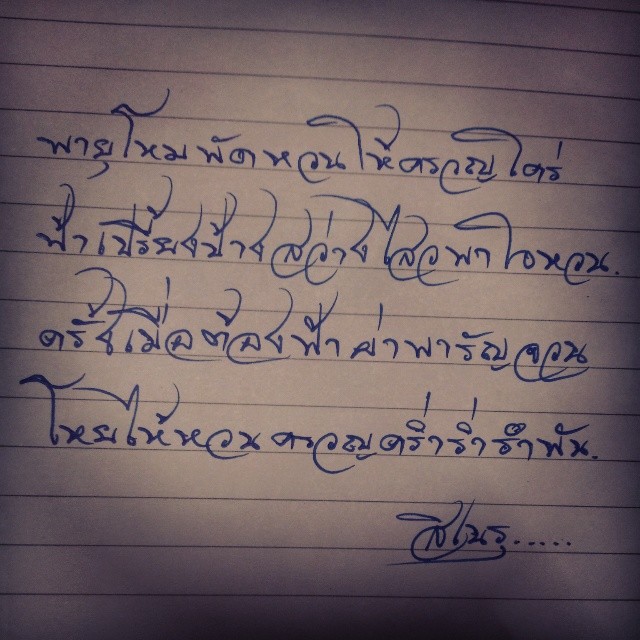 พายุโหมพัดหวนให้ครวญใคร่
ฟ้าเปรี้ยงป้างสว่างไสวพาไอหวน.
ครั้งเมื่อต้องฟ้าผ่าพารัญจวน
โหยให้หวนครวญคร่ำร่ำรำพัน.
สิเนรุ......